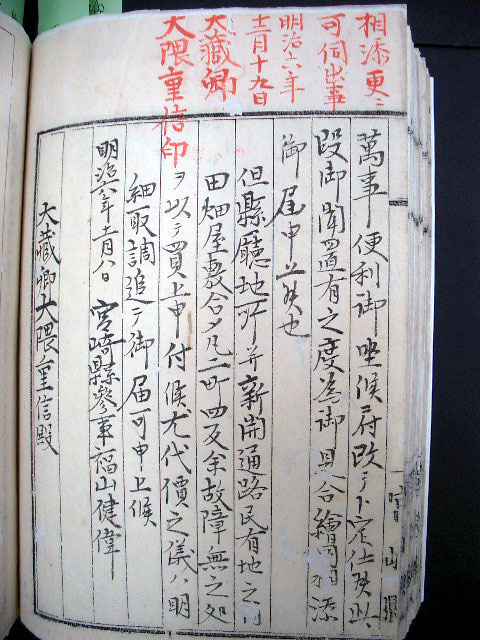 相添更ニ
可伺出事
明治六年
十二月十九日
大藏卿
大隈重信印
萬事便利御坐候ニ付改テ卜定仕候此
段御聞置有之度為御見合繪圖相添
御届申上候也
但縣廳地所并新開通路民有地之内
田畑屋敷合メ凡二町四反余故障無之処
ヲ以テ買上申付候尤代價之儀ハ明
細取調追テ御届可申上候
明治六年十二月八日 宮崎縣参事福山健偉
大藏卿大隈重信殿